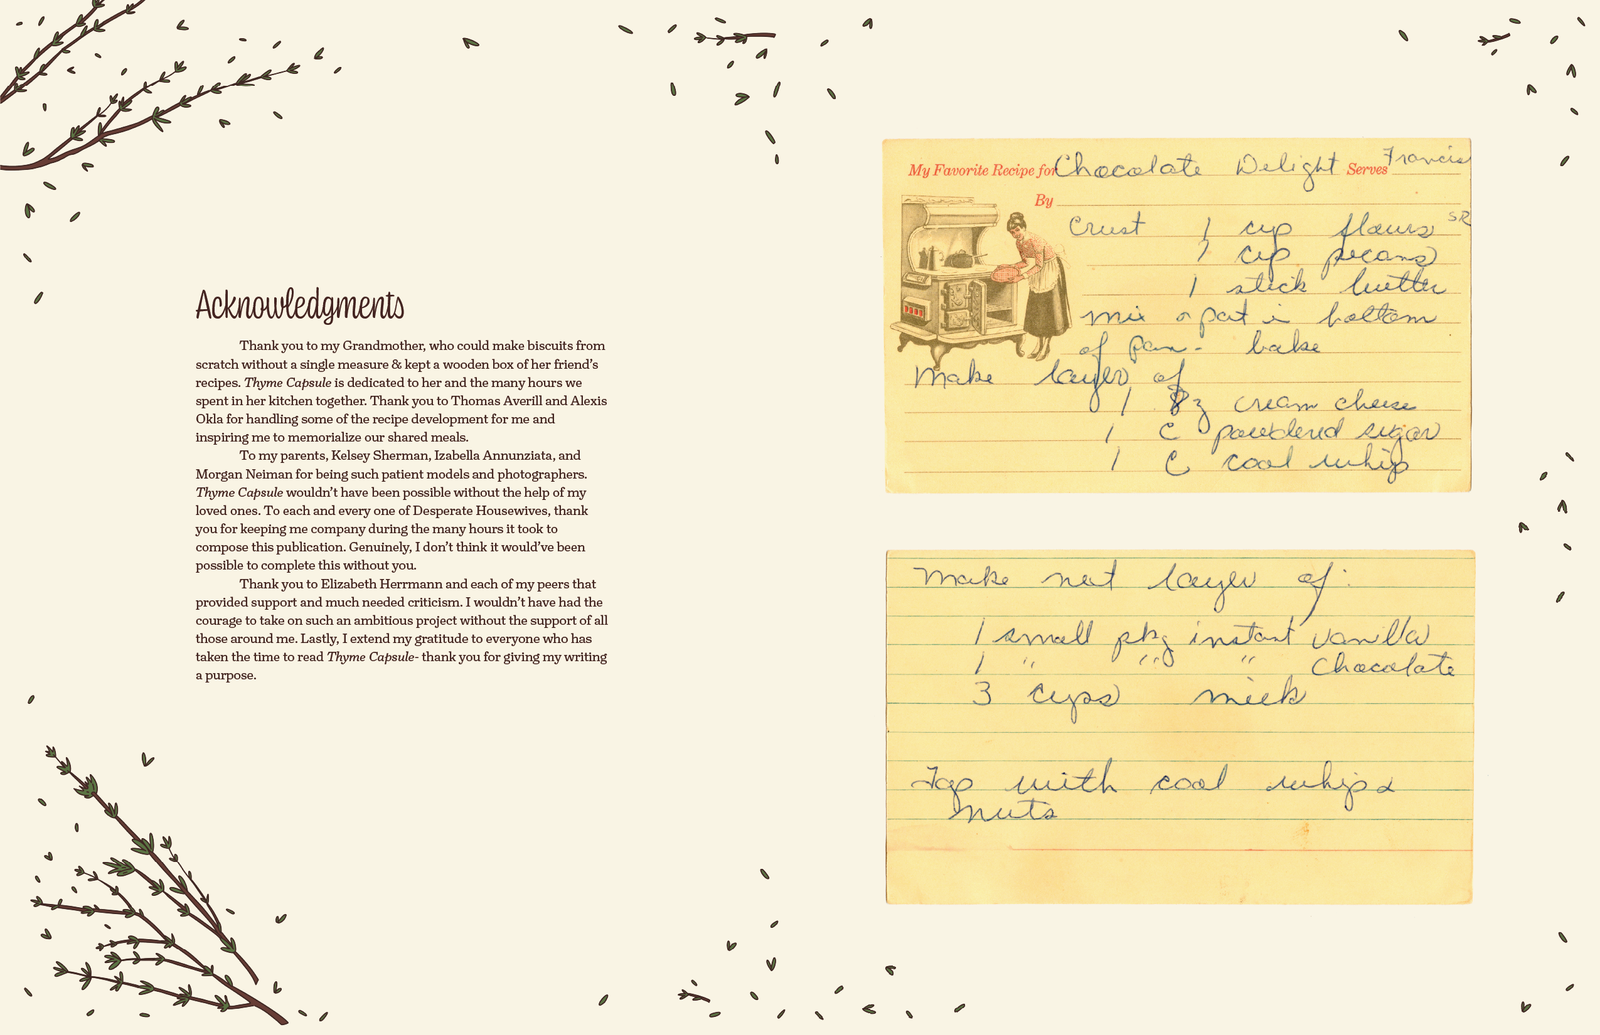 Acknowledgments
Thank you to my Grandmother, who could make biscuits from
scratch without a single measure & kept a wooden box of her friend's
recipes. Thyme Capsule is dedicated to her and the many hours we
spent in her kitchen together. Thank you to Thomas Averill and Alexis
Okla for handling some of the recipe development for me and
inspiring me to memorialize our shared meals.
To my parents, Kelsey Sherman, Izabella Annunziata, and
Morgan Neiman for being such patient models and photographers.
Thyme Capsule wouldn't have been possible without the help of my
loved ones. To each and every one of Desperate Housewives, thank
you for keeping me company during the many hours it took to
compose this publication. Genuinely, I don't think it would've been
possible to complete this without you.
Thank you to Elizabeth Herrmann and each of my peers that
provided support and much needed criticism. I wouldn't have had the
courage to take on such an ambitious project without the support of all
those around me. Lastly, I extend my gratitude to everyone who has
taken the time to read Thyme Capsule- thank you for giving my writing
a purpose.
My Favorite Recipe for Chocolate Delight Serves Francis
By
Crust 1 cup flour SR
1 cup pecans
1 stick butter
mix & pat in bottom
of pan - bake
Make layer of
1 8z cream cheese
1 C powdered sugar
1 C cool whip
Make next layer of:
1 small pkg instant vanilla
1 " " " Chocolate
3 cups milk
Top with cool whip &
nuts